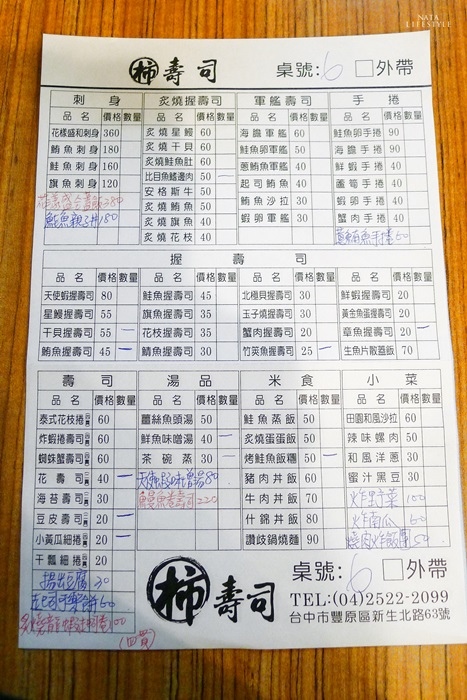 NATA
LIFESTYLE
柿 壽司 桌號: 6 □外帶
刺身 炙燒握壽司 軍艦壽司 手捲
品名 價格 數量 品名 價格 數量 品名 價格 數量 品名 價格 數量
花樣盛和刺身 360 炙燒星鰻 60 海膽軍艦 60 鮭魚卵手捲 90
鮪魚刺身 180 炙燒干貝 60 鮭魚卵軍艦 50 海膽手捲 90
鮭魚刺身 160 炙燒鮭魚肚 60 蔥鮪魚軍艦 40 鮮蝦手捲 40
旗魚刺身 120 比目魚鰭邊肉 50 一 起司鮪魚 40 蘆筍手捲 40
安格斯牛 50 鮪魚沙拉 30 蝦卵手捲 40
鮭魚親子丼 180 炙燒鮪魚 50 蝦卵軍艦 30 蟹肉手捲 40
炙燒旗魚 40 蔥鮪魚手捲 50
炙燒花枝 40
握壽司
品名 價格 數量 品名 價格 數量 品名 價格 數量 品名 價格 數量
天使蝦握壽司 80 鮭魚握壽司 45 北極貝握壽司 30 鮮蝦握壽司 20
星鰻握壽司 55 旗魚握壽司 35 玉子燒握壽司 30 黃金魚蛋握壽司 20
干貝握壽司 55 一 花枝握壽司 35 蟹肉握壽司 20 章魚握壽司 20 一
鮪魚握壽司 45 一 鯖魚握壽司 30 竹筴魚握壽司 25 一 生魚片散蓋飯 70
壽司 湯品 米食 小菜
品名 價格 數量 品名 價格 數量 品名 價格 數量 品名 價格 數量
泰式花枝捲 60 薑絲魚頭湯 50 鮭魚蒸飯 50 田園和風沙拉 60
炸蝦捲壽司 60 鮮魚味噌湯 40 一 炙燒蛋蛋飯 50 辣味螺肉 50
蜘蛛蟹壽司 60 茶碗蒸 30 一 烤鮭魚飯糰 50 一 和風洋蔥 30
花壽司 40 一 天使蝦味噌湯 80 豬肉丼飯 60 蜜汁黑豆 30
海苔壽司 30 鰻魚卷壽司 220 牛肉丼飯 70 炸野菜 100
豆皮壽司 20 一 什錦丼飯 80 炸南瓜 60
小黃瓜細捲 20 一 讚岐鍋燒麵 90 燒肉炸飯糰 50
干瓢細捲 20
揚出豆腐 30
柿 壽司 桌號: 6 □外帶
TEL:(04)2522-2099
台中市豐原區新生北路63號